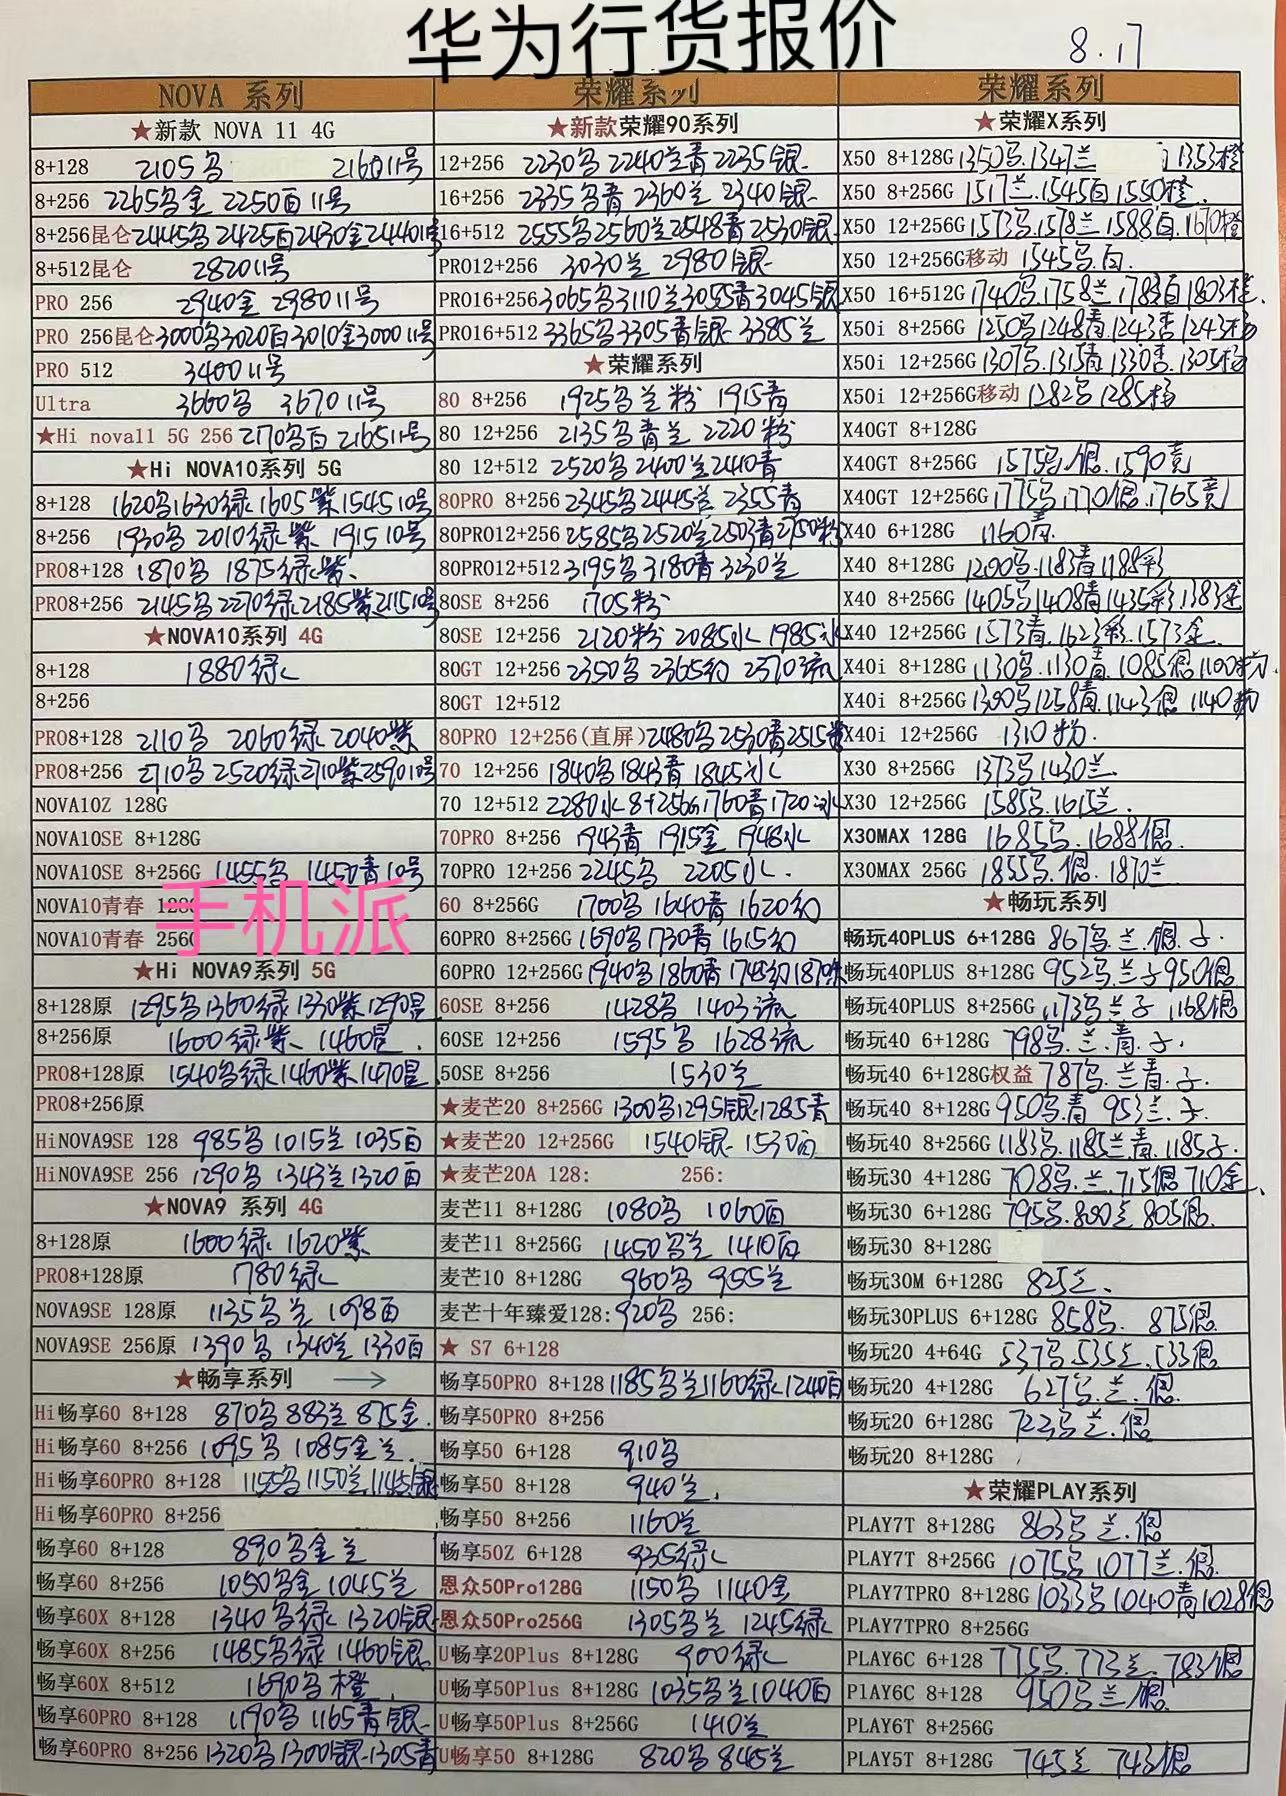 华为行货报价
8.17
NOVA 系列
★新款 NOVA 11 4G
8+128 2105乌 2160 11号
8+256 2265乌金 2250白11号
8+256昆仑 2445乌 2425白 2430金 2440 11号
8+512昆仑 2820 11号
PRO 256 2940金 2980 11号
PRO 256昆仑 3000乌 3020白 3010金 3000 11号
PRO 512 3400 11号
Ultra 3660乌 3670 11号
★Hi nova11 5G 256 2170乌白 2165 11号
★Hi NOVA10系列 5G
8+128 1620乌 1630绿 1605紫 1545 10号
8+256 1930乌 2010绿紫 1915 10号
PRO8+128 1870乌 1875绿紫、
PRO8+256 2145乌 2270绿 2185紫 2115 10号
★NOVA10系列 4G
8+128 1880绿
8+256
PRO8+128 2110乌 2060绿 2040紫
PRO8+256 2710乌 2520绿 2710紫 2590 10号
NOVA10Z 128G
NOVA10SE 8+128G
NOVA10SE 8+256G 1455乌 1450青10号
NOVA10青春 128G
NOVA10青春 256G
手机派
★Hi NOVA9系列 5G
8+128原 1295乌 1360绿 1330紫 1290昆
8+256原 1600绿紫、1460昆.
PRO8+128原 1540乌绿 1460紫 1470昆
PRO8+256原
HiNOVA9SE 128 985乌 1015兰 1035白
HiNOVA9SE 256 1290乌 1343兰 1320白
★NOVA9 系列 4G
8+128原 1600绿 1620紫
PRO8+128原 1780绿
NOVA9SE 128原 1135乌兰 1098白
NOVA9SE 256原 1390乌 1340兰 1330白
★畅享系列 →
Hi畅享60 8+128 870乌 882兰 875金.
Hi畅享60 8+256 1095乌 1085金兰
Hi畅享60PRO 8+128 1155乌 1150兰 1145银
Hi畅享60PRO 8+256
畅享60 8+128 890乌金兰
畅享60 8+256 1050乌金 1045兰
畅享60X 8+128 1340乌绿 1320银
畅享60X 8+256 1485乌绿 1460银
畅享60X 8+512 1690乌橙
畅享60PRO 8+128 1190乌 1165青银
畅享60PRO 8+256 1320乌 1300银 1305青
荣耀系列
★新款荣耀90系列
12+256 2230乌 2240兰青 2235银
16+256 2335乌青 2360兰 2340银
16+512 2555乌 2560兰 2548青 2530银
PRO12+256 3030兰 2980银
PRO16+256 3065乌 3110兰 3055青 3045银
PRO16+512 3365乌 3305青银 3385兰
★荣耀系列
80 8+256 1925乌兰粉 1915青
80 12+256 2135乌青兰 2220粉
80 12+512 2520乌 2400兰 2410青
80PRO 8+256 2345乌 2445兰 2355青
80PRO12+256 2585乌 2520兰 2503青 2750粉
80PRO12+512 3195乌 3180青 3230兰
80SE 8+256 1705粉
80SE 12+256 2120粉 2085水 1985冰
80GT 12+256 2350乌 2365幻 2370流
80GT 12+512
80PRO 12+256(直屏) 2480乌 2530青 2515紫
70 12+256 1840乌 1843青 1845冰
70 12+512 2280水 8+256G 1760青 1720冰
70PRO 8+256 1943青 1915金 1948水
70PRO 12+256 2245乌 2205水.
60 8+256G 1700乌 1640青 1620幻
60PRO 8+256G 1690乌 1730青 1615幻
60PRO 12+256G 1940乌 1860青 1745幻 1870
60SE 8+256 1428乌 1403流
60SE 12+256 1595乌 1628流
50SE 8+256 1530兰
★麦芒20 8+256G 1300乌 1295银 1285青
★麦芒20 12+256G 1540银 1530白
★麦芒20A 128: 256:
麦芒11 8+128G 1080乌 1060白
麦芒11 8+256G 1450乌兰 1410白
麦芒10 8+128G 960乌 955兰
麦芒十年臻爱128: 920乌 256:
★ S7 6+128
畅享50PRO 8+128 1185乌兰 1160绿 1240白
畅享50PRO 8+256
畅享50 6+128 910乌
畅享50 8+128 940兰.
畅享50 8+256 1160兰
畅享50Z 6+128 935绿
恩众50Pro128G 1150乌 1140金
恩众50Pro256G 1305乌兰 1245绿
U畅享20Plus 8+128G 900绿
U畅享50Plus 8+128G 1035乌兰 1040白
U畅享50Plus 8+256G 1410兰
U畅享50 8+128G 820乌 845兰
荣耀系列
★荣耀X系列
X50 8+128G 1350乌.1347兰 1353橙
X50 8+256G 1517兰.1545白 1550橙.
X50 12+256G 1573乌.1578兰 1588白.1670橙
X50 12+256G移动 1545乌.白.
X50 16+512G 1740乌.1758兰.1783白 1803橙.
X50i 8+256G 1250乌 1248青.1243杏 1243杨
X50i 12+256G 1307乌.1315青 1330杏.1305杨
X50i 12+256G移动 1282乌 1285杨
X40GT 8+128G
X40GT 8+256G 1575乌.银.1590竞
X40GT 12+256G 1775乌.1770银.1765竞
X40 6+128G 1160青.
X40 8+128G 1200乌.1183青 1188彩
X40 8+256G 1405乌 1408青 1435彩.1383金
X40 12+256G 1573青.1623彩.1573金.
X40i 8+128G 1130乌.1130青.1085银 1100粉.
X40i 8+256G 1300乌 1258青.1143银 1140粉
X40i 12+256G 1310粉.
X30 8+256G 1373乌 1430兰.
X30 12+256G 1585乌.1615兰.
X30MAX 128G 1685乌.1688银.
X30MAX 256G 1855乌.银.1870兰
★畅玩系列
畅玩40PLUS 6+128G 867乌.兰.银.子.
畅玩40PLUS 8+128G 952乌.兰子 950银
畅玩40PLUS 8+256G 1173乌兰子 1168银
畅玩40 6+128G 798乌.兰.青.子.
畅玩40 6+128G权益 787乌.兰青.子.
畅玩40 8+128G 950乌.青 953兰.子.
畅玩40 8+256G 1183乌.1185兰青.1185子.
畅玩30 4+128G 708乌.兰.715银 710金.
畅玩30 6+128G 795乌.800兰 805银.
畅玩30 8+128G
畅玩30M 6+128G 825兰.
畅玩30PLUS 6+128G 858乌. 875银
畅玩20 4+64G 537乌.535兰.533银
畅玩20 4+128G 627乌.兰.银
畅玩20 6+128G 723乌兰.银
畅玩20 8+128G
★荣耀PLAY系列
PLAY7T 8+128G 863乌兰.银
PLAY7T 8+256G 1075乌 1077兰.银
PLAY7TPRO 8+128G 1033乌 1040青 1028银
PLAY7TPRO 8+256G
PLAY6C 6+128 775乌.773兰.783银
PlAY6C 8+128 950乌兰银
PLAY6T 8+256G
PLAY5T 8+128G 745兰 743银